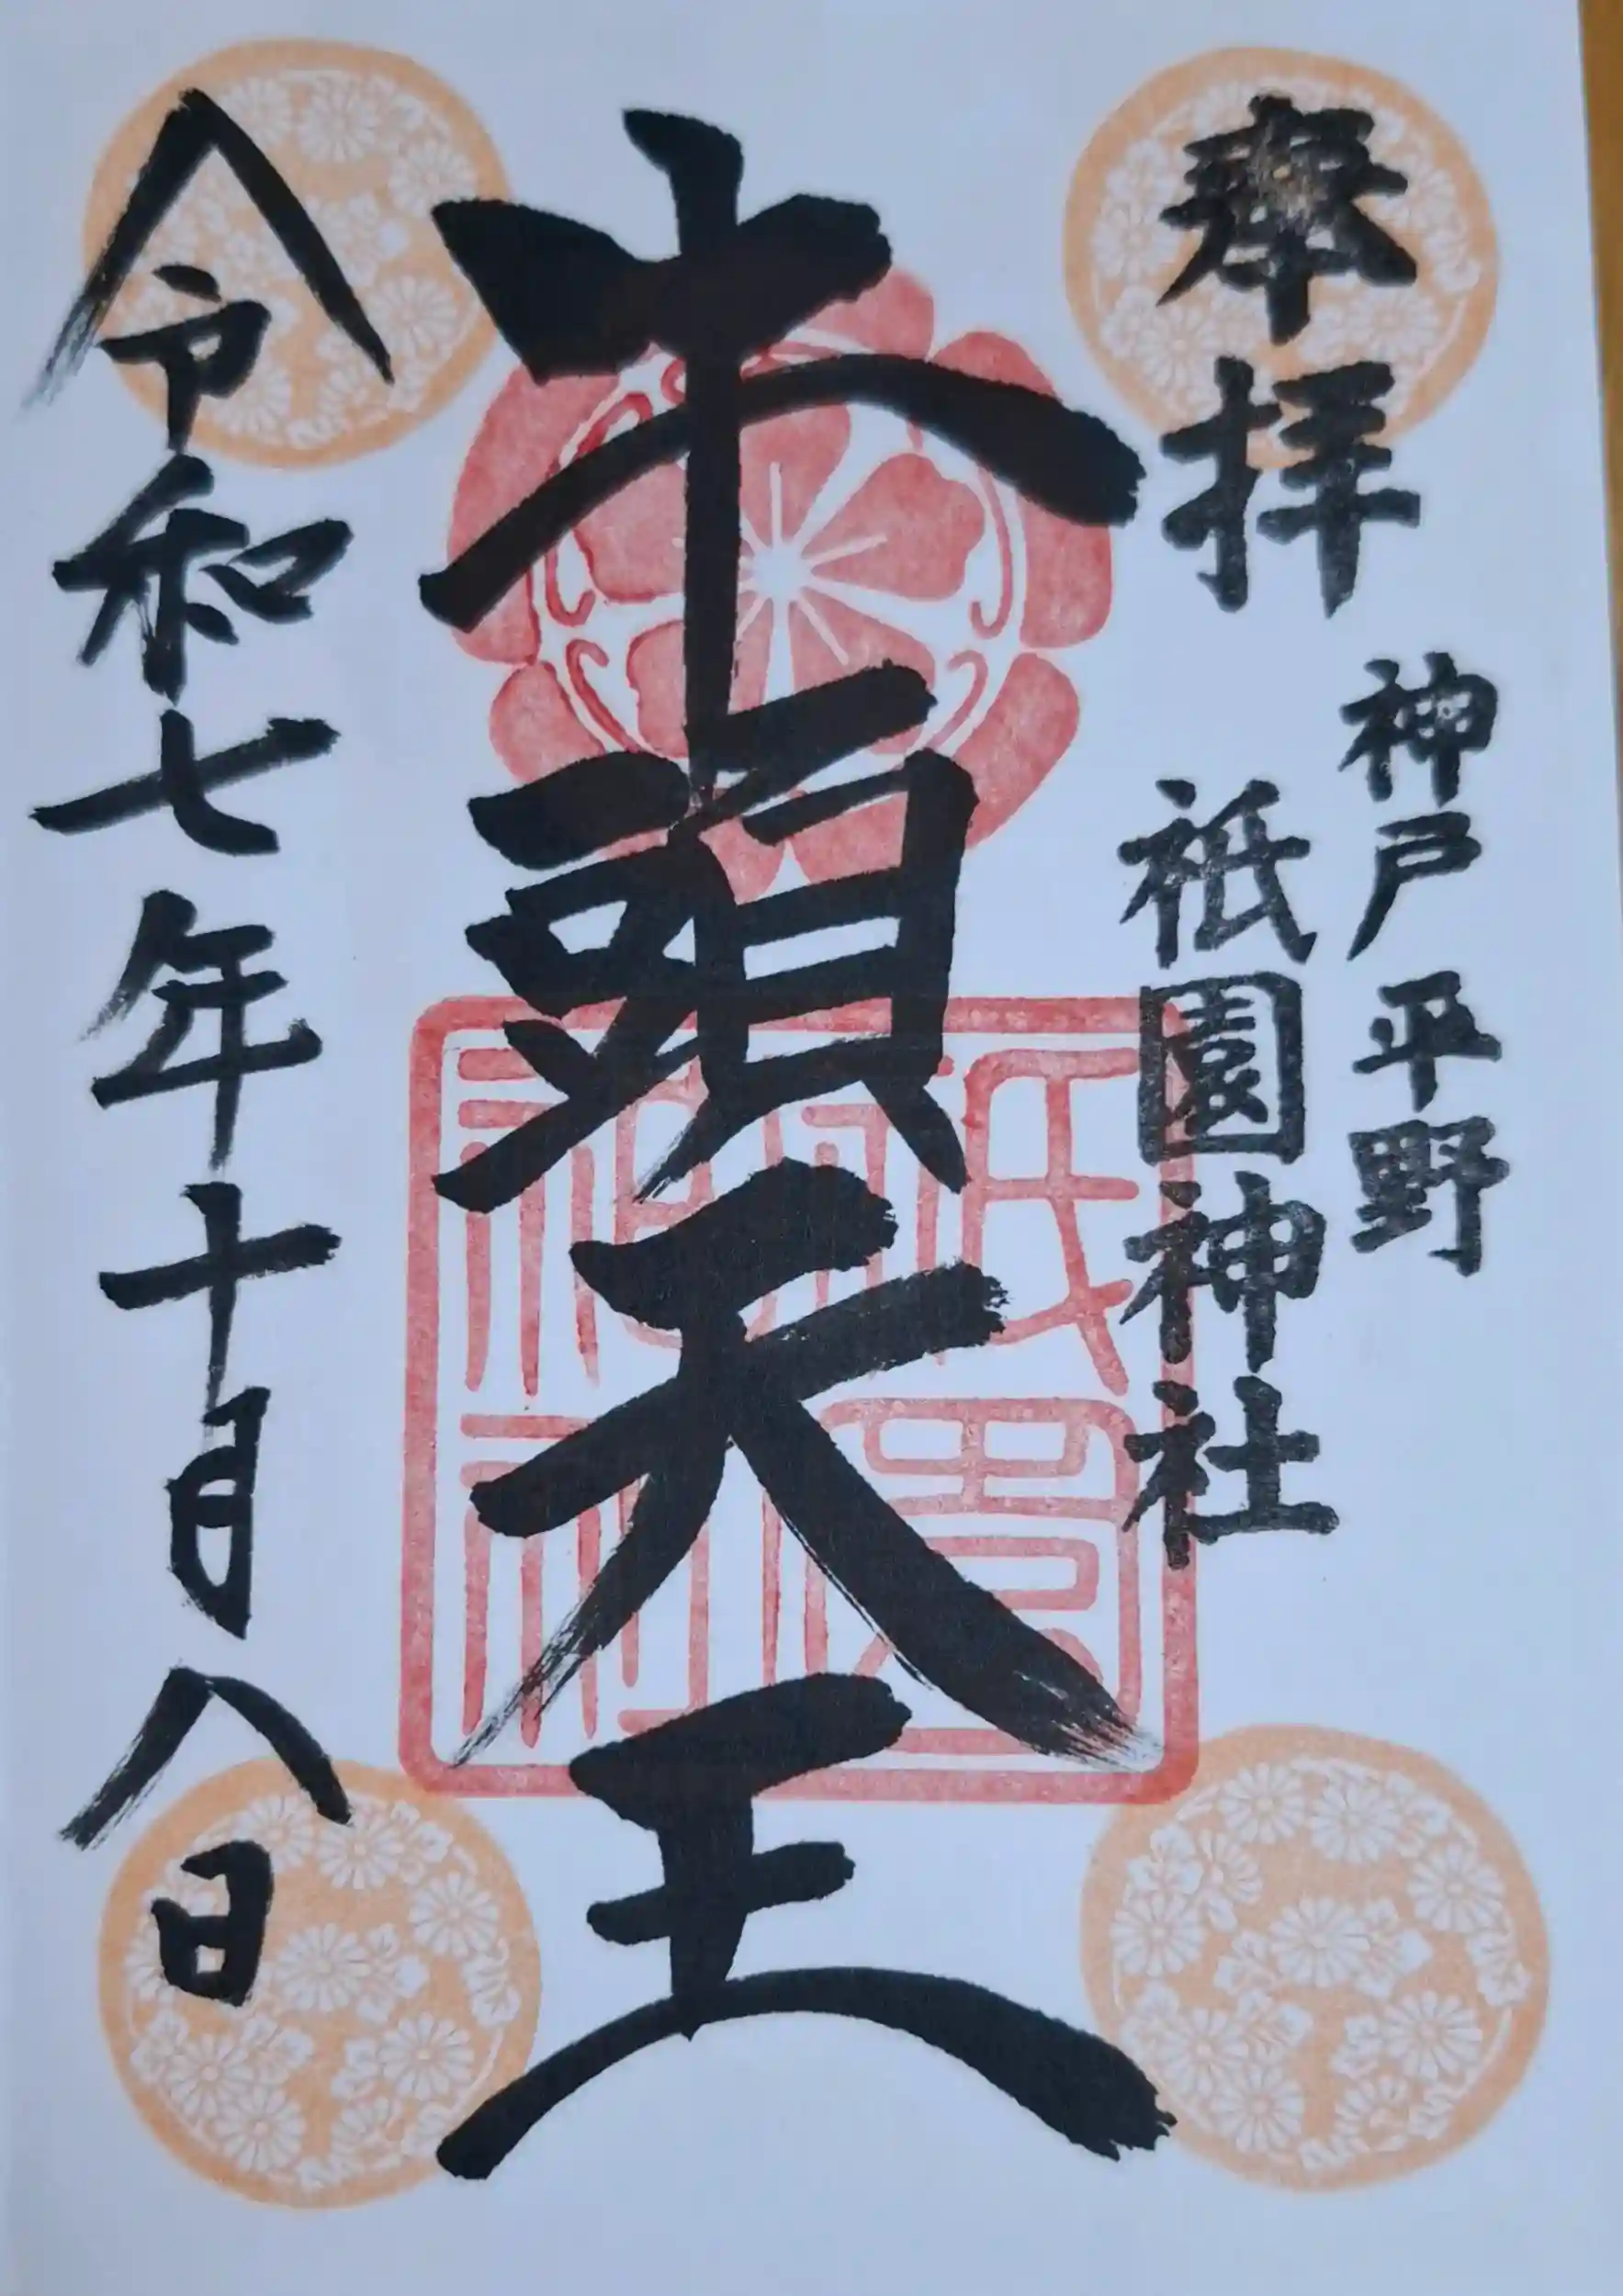 奉拝
神戸平野
祇園神社
牛頭天王
令和七年十月八日
祇園神社